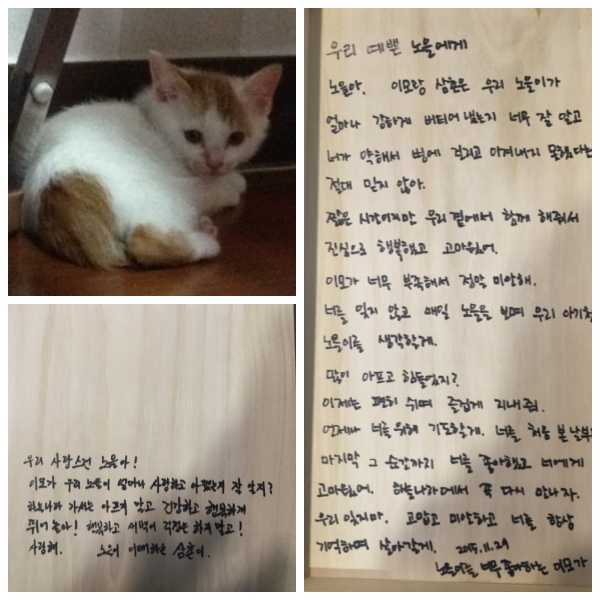 우리 예쁜 노을에게
노을아. 이모랑 삼촌은 우리 노을이가
얼마나 강하게 버티어 냈는지 너무 잘 알고
너가 약해서 병에 걸리고 이겨내지 못했다는
절대 믿지 않아.
짧은 시간이지만 우리곁에서 함께 해줘서
진심으로 행복했고 고마웠어.
이모가 너무 부족해서 정말 미안해.
너를 잊지 않고 매일 노을을 보며 우리 아기천
노을이를 생각할게.
많이 아프고 힘들었지?
이제는 편히 쉬며 즐겁게 지내줘.
언제나 너를 위해 기도할게. 너를 처음 본 날부
마지막 그 순간까지 너를 좋아했고 너에게
고마웠어. 하늘나라에서 꼭 다시 만나자.
우리 잊지마. 고맙고 미안하고 너를 항상
기억하며 살아갈게. 2015.11.29
노을이를 너무 좋아하는 이모가
우리 사랑스런 노을아!
이모가 우리 노을이 얼마나 사랑하고 아꼈는지 잘 알지?
하늘나라 가서는 아프지 말고 건강하고 행복하게
뛰어 놀아! 행복하고 새벽이 걱정은 하지 말고!
사랑해. 노을이 이뻐하는 삼촌이.